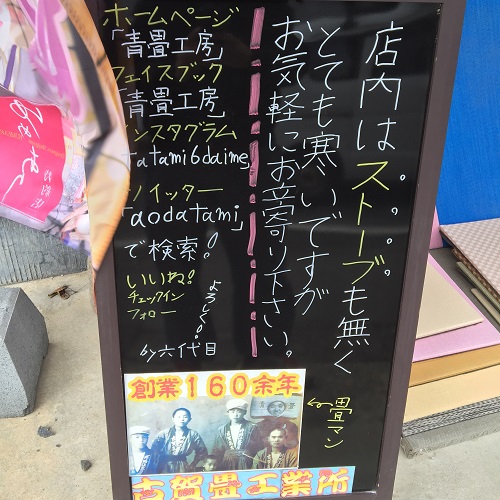 店内はストーブも無く
とても寒いですが
お気軽にお立寄り下さい。
ホームページ
「青畳工房」
フェイスブック
「青畳工房」
インスタグラム
tatami6daime
ツイッター
「aodatami」
で検索!
いいね!
チェックイン
フォロー
よろしく!
by六代目
創業160余年
←畳マン
古賀畳工業所